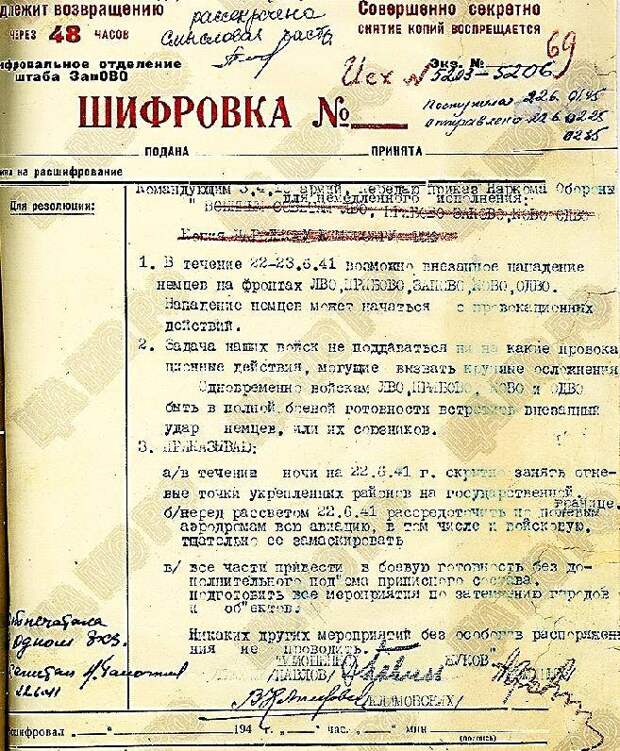 длежит возвращению
ЧЕРЕЗ 48 ЧАСОВ
рассекречена
смысловая часть
Совершенно секретно
СНЯТИЕ КОПИЙ ВОСПРЕЩАЕТСЯ
69
ифровальное отделение
штаба ЗапОВО
Экз. №
Исх № 5203-5206
ШИФРОВКА №
Поступила 22.6. 01.45
Отправлено 22.6 02.25
02.35
ПОДАНА ПРИНЯТА
на расшифрование
Для резолюции:
Командующим 3,4,10 армий, передаю приказ Наркома Обороны
для немедленного исполнения:
1. В течение 22-23.6.41 возможно внезапное нападение
немцев на фронтах ЛВО,ПРИБОВО,ЗАПОВО,КОВО,ОДВО.
Нападение немцев может начаться с провокационных
действий.
2. Задача наших войск не поддаваться ни на какие провока
ционные действия, могущие вызвать крупные осложнения
Одновременно войскам ЛВО,ПРИБОВО, КОВО и ОДВО
быть в полной боевой готовности встретить внезапный
удар немцев, или их союзников.
3. ПРИКАЗЫВАЮ:
а/в течение ночи на 22.6.41 г. скрытно занять огне-
вые точки укрепленных районов на государственной
границе.
б/перед рассветом 22.6.41 рассредоточить по полевым
аэродромам всю авиацию, в том числе и войсковую.
тщательно ее замаскировать
в/ все части привести в боевую готовность без до-
полнительного под"ема приписного состава.
Подготовить все мероприятия по затемнению городов
и об"ектов.
Никаких других мероприятий без особого распоряжен
ния не проводить.
ТИМОШЕНКО ЖУКОВ
ПАВЛОВ/
КЛИМОВСКИХ/
Отпечатано
в одном экз.
22.6.41
шифровал „ “ 194 г. „ “ час. „ “ мин
(подпись)
ЦА МО РФ